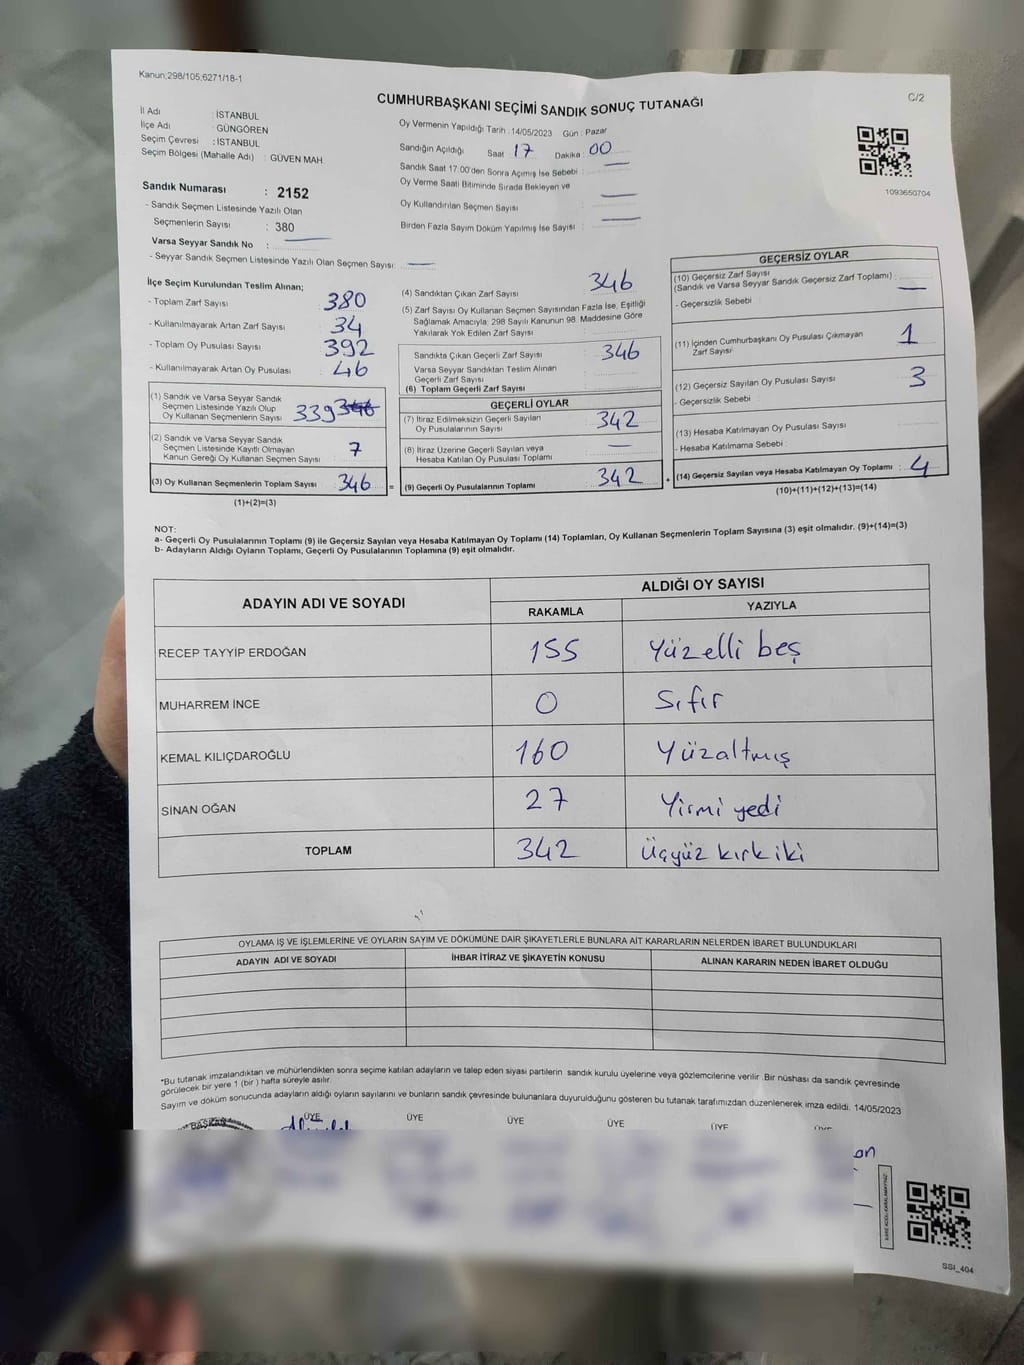 Kanun;298/105;6271/18-1
CUMHURBAŞKANI SEÇİMİ SANDIK SONUÇ TUTANAĞI
C/2
İl Adı : İSTANBUL
İlçe Adı : GÜNGÖREN
Seçim Çevresi : İSTANBUL
Seçim Bölgesi (Mahalle Adı) : GÜVEN MAH
Sandık Numarası : 2152
- Sandık Seçmen Listesinde Yazılı Olan
Seçmenlerin Sayısı : 380
Varsa Seyyar Sandık No : —
- Seyyar Sandık Seçmen Listesinde Yazılı Olan Seçmen Sayısı: —
Oy Vermenin Yapıldığı Tarih : 14/05/2023 Gün : Pazar
Sandığın Açıldığı Saat 17 Dakika : 00
Sandık Saat 17:00'den Sonra Açımış İse Sebebi : —
Oy Verme Saati Bitiminde Sırada Bekleyen ve
Oy Kullandırılan Seçmen Sayısı —
Birden Fazla Sayım Döküm Yapılmış İse Sayısı : —
1093650704
İlçe Seçim Kurulundan Teslim Alınan;
- Toplam Zarf Sayısı : 380
- Kullanılmayarak Artan Zarf Sayısı : 34
- Toplam Oy Pusulası Sayısı : 392
- Kullanılmayarak Artan Oy Pusulası : 46
(1) Sandık ve Varsa Seyyar Sandık
Seçmen Listesinde Yazılı Olup
Oy Kullanan Seçmenlerin Sayısı 339 346
(2) Sandık ve Varsa Seyyar Sandık
Seçmen Listesinde Kayıtlı Olmayan
Kanun Gereği Oy Kullanan Seçmen Sayısı 7
(3) Oy Kullanan Seçmenlerin Toplam Sayısı 346 =
(1)+(2)=(3)
(4) Sandıktan Çıkan Zarf Sayısı : 346
(5) Zarf Sayısı Oy Kullanan Seçmen Sayısından Fazla İse, Eşitliği
Sağlamak Amacıyla; 298 Sayılı Kanunun 98. Maddesine Göre
Yakılarak Yok Edilen Zarf Sayısı :
Sandıkta Çıkan Geçerli Zarf Sayısı : 346
Varsa Seyyar Sandıktan Teslim Alınan
Geçerli Zarf Sayısı
(6) Toplam Geçerli Zarf Sayısı
GEÇERLİ OYLAR
(7) İtiraz Edilmeksizin Geçerli Sayılan
Oy Pusulalarının Sayısı : 342
(8) İtiraz Üzerine Geçerli Sayılan veya
Hesaba Katılan Oy Pusulası Toplamı —
(9) Geçerli Oy Pusulalarının Toplamı 342 +
GEÇERSİZ OYLAR
(10) Geçersiz Zarf Sayısı
(Sandık ve Varsa Seyyar Sandık Geçersiz Zarf Toplamı) : —
- Geçersizlik Sebebi :
(11) İçinden Cumhurbaşkanı Oy Pusulası Çıkmayan
Zarf Sayısı 1
(12) Geçersiz Sayılan Oy Pusulası Sayısı : 3
- Geçersizlik Sebebi :
(13) Hesaba Katılmayan Oy Pusulası Sayısı :
- Hesaba Katılmama Sebebi :
(14) Geçersiz Sayılan veya Hesaba Katılmayan Oy Toplamı : 4
(10)+(11)+(12)+(13)=(14)
NOT:
a- Geçerli Oy Pusulalarının Toplamı (9) ile Geçersiz Sayılan veya Hesaba Katılmayan Oy Toplamı (14) Toplamları, Oy Kullanan Seçmenlerin Toplam Sayısına (3) eşit olmalıdır. (9)+(14)=(3)
b- Adayların Aldığı Oyların Toplamı, Geçerli Oy Pusulalarının Toplamına (9) eşit olmalıdır.
ADAYIN ADI VE SOYADI
ALDIĞI OY SAYISI
RAKAMLA YAZIYLA
RECEP TAYYİP ERDOĞAN 155 Yüzelli beş
MUHARREM İNCE 0 Sıfır
KEMAL KILIÇDAROĞLU 160 Yüzaltmış
SİNAN OĞAN 27 Yirmi yedi
TOPLAM 342 Üçyüz kırk iki
OYLAMA İŞ VE İŞLEMLERİNE VE OYLARIN SAYIM VE DÖKÜMÜNE DAİR ŞİKAYETLERLE BUNLARA AİT KARARLARIN NELERDEN İBARET BULUNDUKLARI
ADAYIN ADI VE SOYADI İHBAR İTİRAZ VE ŞİKAYETİN KONUSU ALINAN KARARIN NEDEN İBARET OLDUĞU
*Bu tutanak imzalandıktan ve mühürlendikten sonra seçime katılan adayların ve talep eden siyasi partilerin sandık kurulu üyelerine veya gözlemcilerine verilir. Bir nüshası da sandık çevresinde
görülecek bir yere 1 (bir ) hafta süreyle asılır.
Sayım ve döküm sonucunda adayların aldığı oyların sayılarını ve bunların sandık çevresinde bulunanlara duyurulduğunu gösteren bu tutanak tarafımızdan düzenlenerek imza edildi. 14/05/2023
BAŞKAN ÜYE ÜYE ÜYE ÜYE ÜYE
SSI_404